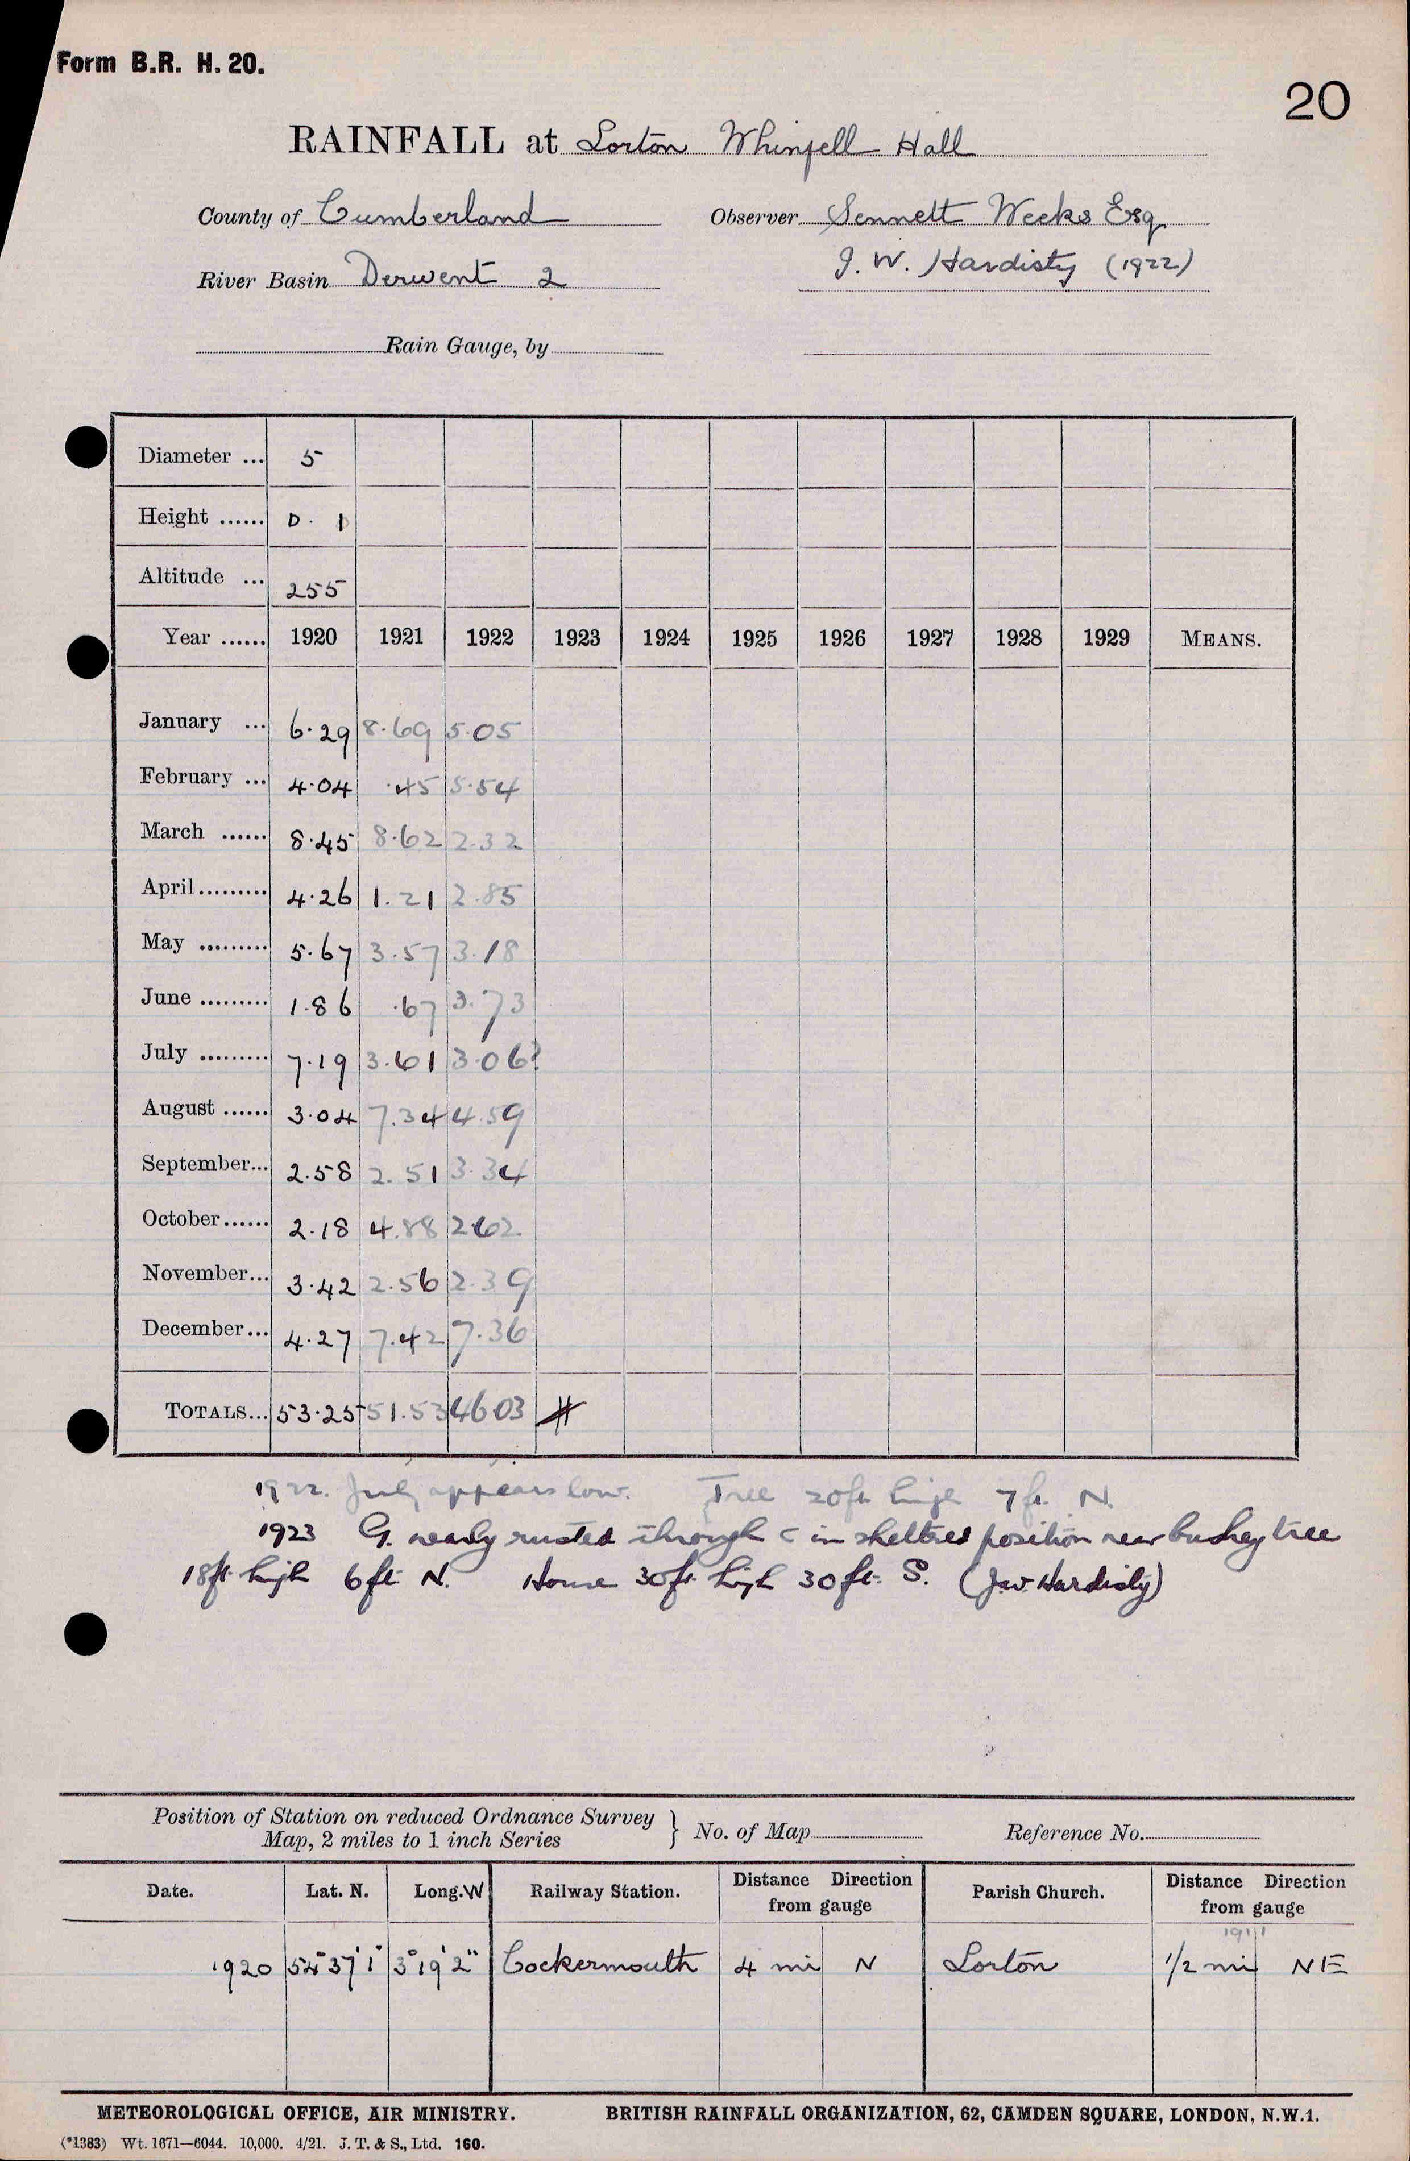 Form B.R. H. 20.
20
RAINFALL at Lorton Whinfell Hall
County of Cumberland Observer Sennett Weeks Esq
River Basin Derwent 2 J. W. Hardisty (1922)
Rain Gauge, by
Diameter ... 5
Height ...... 0. 1
Altitude ... 255
Year ...... 1920 1921 1922 1923 1924 1925 1926 1927 1928 1929 MEANS.
January ... 6.29 8.69 5.05
February ... 4.04 .45 5.54
March ...... 8.45 8.62 2.32
April ......... 4.26 1.21 2.85
May ......... 5.67 3.57 3.18
June ......... 1.86 .67 3.73
July ......... 7.19 3.61 3.06?
August ...... 3.04 7.34 4.59
September... 2.58 2.51 3.34
October ...... 2.18 4.88 2.62
November... 3.42 2.56 2.39
December... 4.27 7.42 7.36
TOTALS... 53.25 51.53 46.03 #
1922. July appears low. Tree 20ft high 7ft. N.
1923 G. nearly rusted through in sheltered position near bushey tree
18ft high 6ft N. House 30ft high 30ft. S. (J.W. Hardisty)
Position of Station on reduced Ordnance Survey
Map, 2 miles to 1 inch Series } No. of Map Reference No.
Date. Lat. N. Long. W Railway Station. Distance Direction from gauge Parish Church. Distance Direction from gauge
1911
1920 54° 37' 1" 3° 19' 2" Cockermouth 4 mi N Lorton 1/2 mi NE
METEOROLOGICAL OFFICE, AIR MINISTRY. BRITISH RAINFALL ORGANIZATION, 62, CAMDEN SQUARE, LONDON, N.W.1.
(*1383) Wt. 1671—6044. 10,000. 4/21. J. T. & S., Ltd. 160.